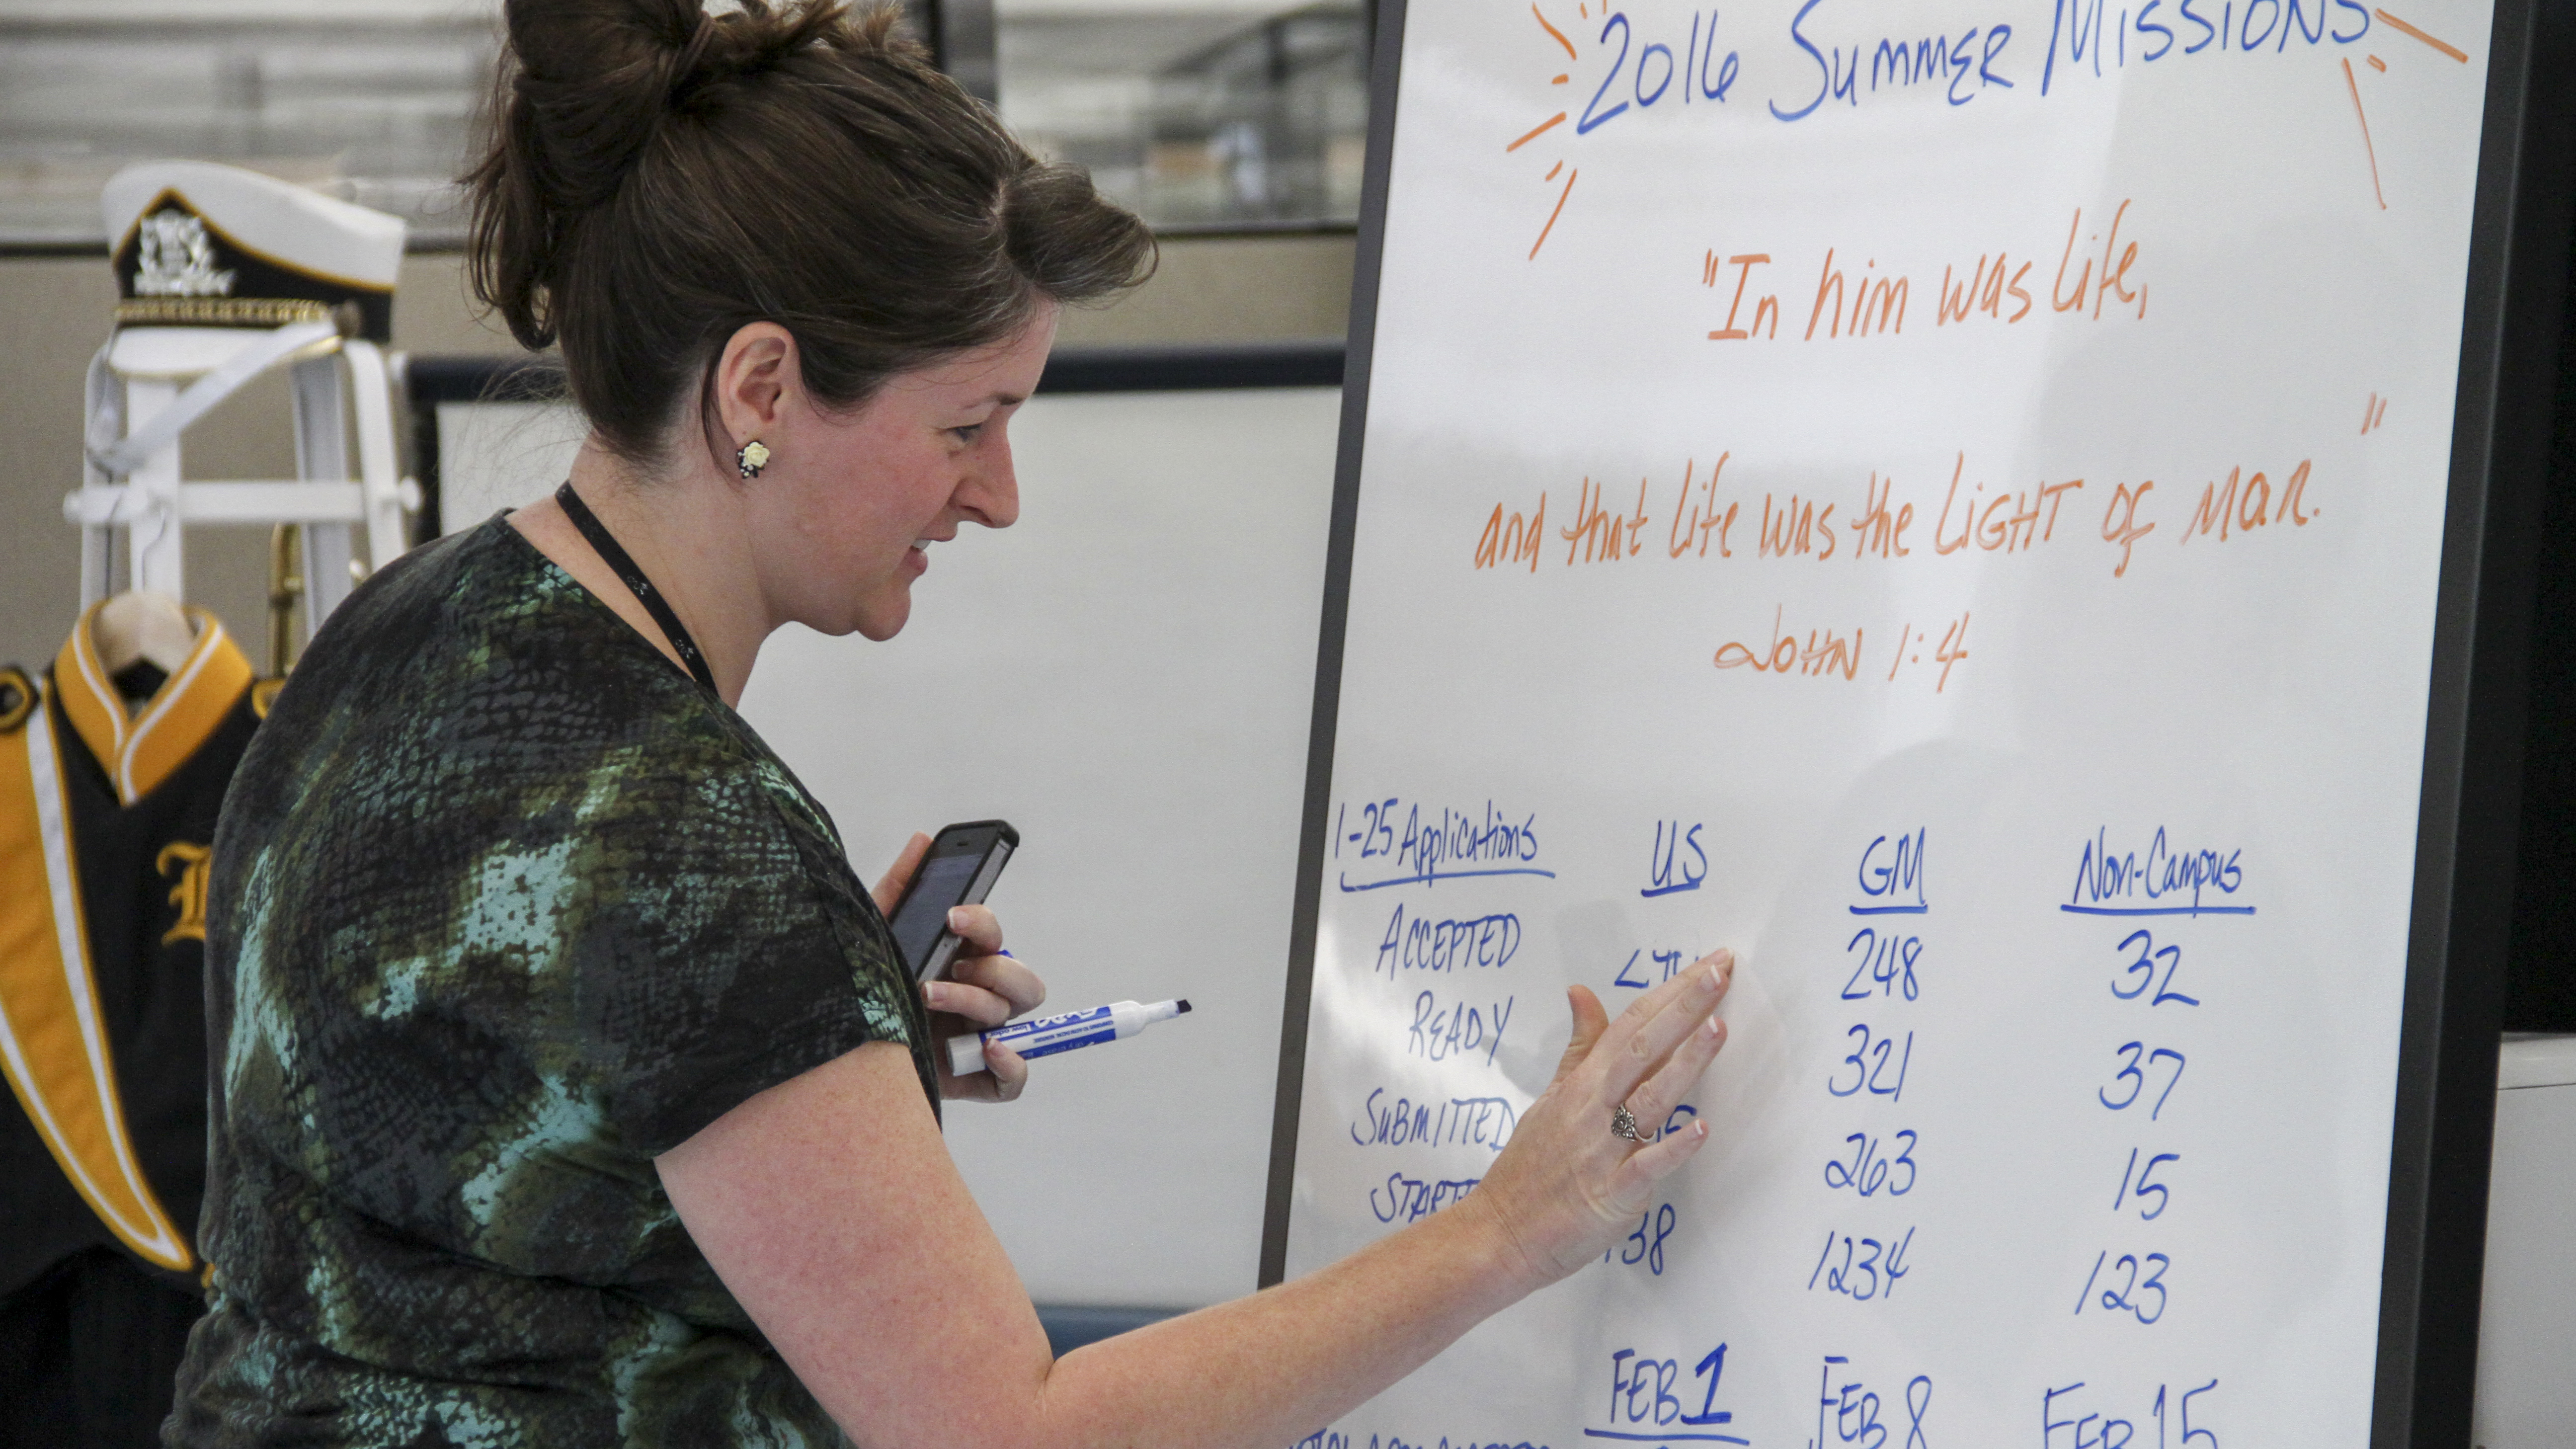 2016 SUMMER MISSIONS
"In him was life,
and that life was the LIGHT OF MAN."
JOHN 1:4
1-25 Applications US GM Non-Campus
ACCEPTED 248 32
READY 321 37
SUBMITTED 263 15
1234 123
FEB 1 FEB 8 FEB 15
EXPO